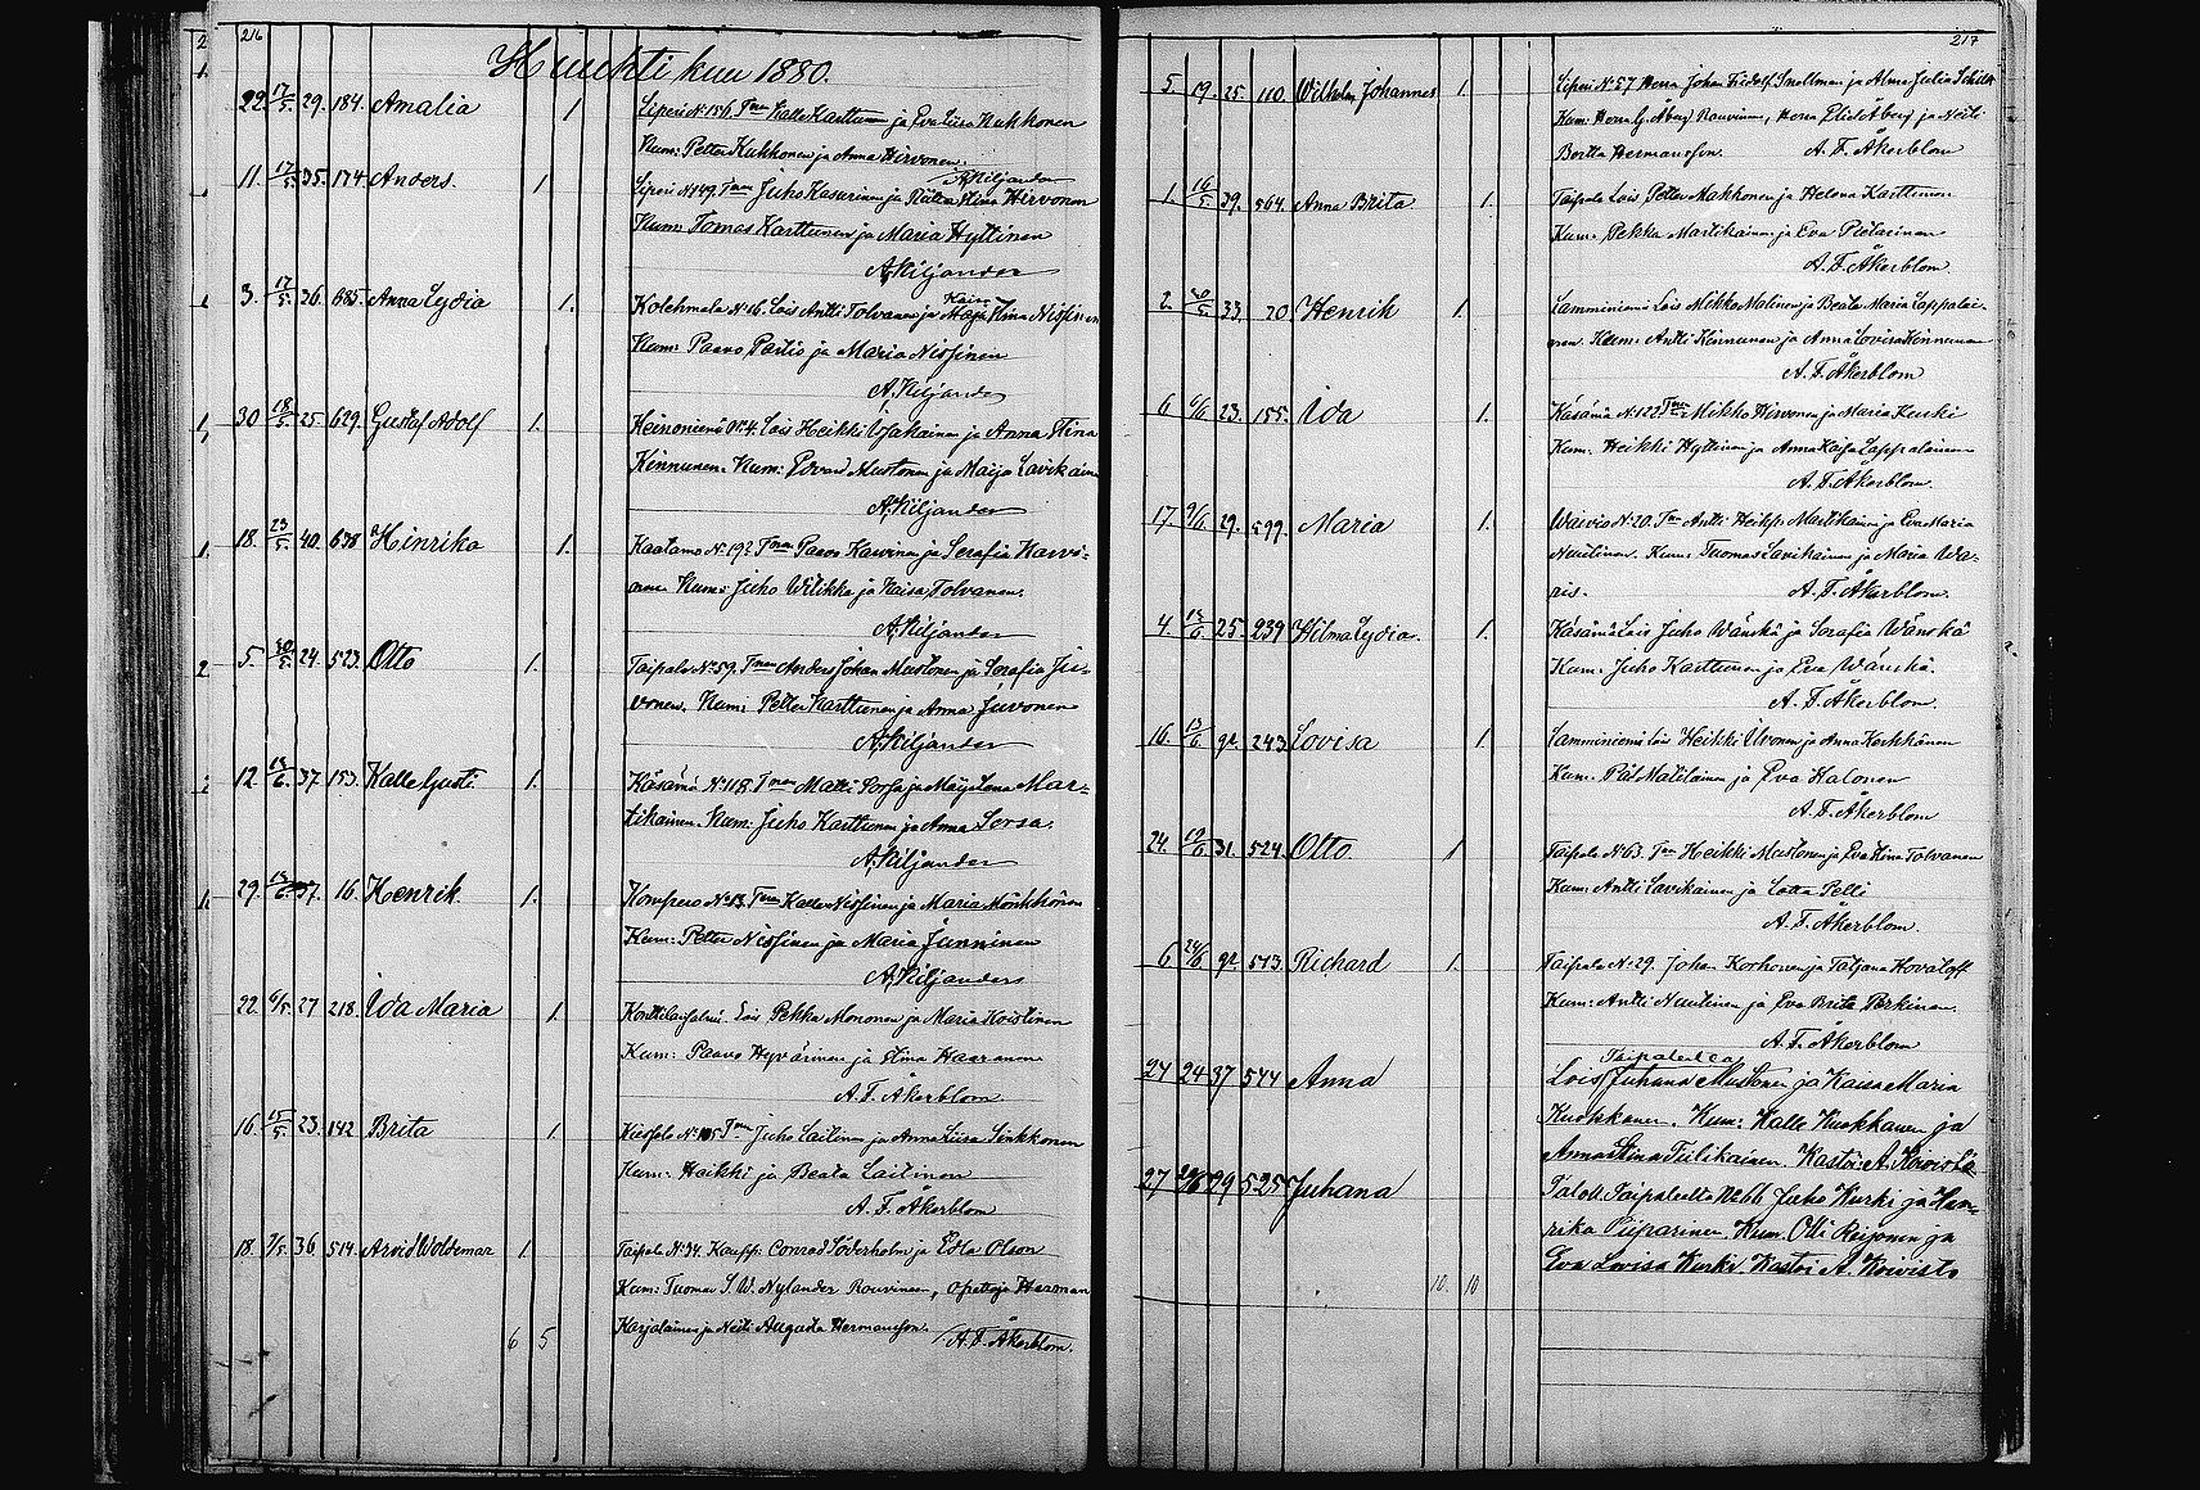 216
Huuhti kuu 1880.
22. 17/5. 29. 184. Amalia 1 Liperi No 156. Tmn Kalle Karttunen ja Eva Liisa Kukkonen
Kum: Petter Kukkonen ja Anna Hirvonen.
A, Kiljander
11. 17/5. 35. 174. Anders. 1 Liperi No 149. Tmn Juho Kasurinen ja Stina Hirvonen
Kum: Tomas Karttunen ja Maria Hyttinen
A, Kiljander
3. 17/5. 26. 685. Anna Lydia 1. Kolehmala No 16. Lois Antti Tolvanen ja Maja Stina Nissinen
Kaisa
Kum: Paavo Partio ja Maria Nissinen
A, Kiljander
30 18/5. 25. 629. Gustaf Adolf 1. Heinoniemi No 4. Lois Heikki ja Anna Stina
Kinnunen. Kum: Edvard Mustonen ja Maija Lavikainen
A, Kiljander
18. 23/5. 40. 638 Hinrika 1. Kaatamo No 19? Tmn Paavo Karvinen ja Serafia Karvi-
nen Kum: Juho Wilikka ja Kaisa Tolvanen.
A, Kiljander
5. 30/5. 24. 523. Otto 1. Taipale No 59. Tmn Anders Johan Mustonen ja Serafia Ju-
vonen. Kum: Petter Karttunen ja Anna Juvonen
A, Kiljander
12. 13/6. 37. 153. Kalle Gusti. 1. Käsämä No 118. Tmn Matti Sorsa ja Maija Lena Mar-
tikainen. Kum: Juho Karttunen ja Anna Sorsa.
A, Kiljander
29. 13/6. 37. 16. Henrik. 1. Kompero No 13. Tmn Kalle Nissinen ja Maria Mönkkönen
Kum: Petter Nissinen ja Maria Junninen
A, Kiljander
22. 6/5. 27 218. Ida Maria 1. Konttilanpalmi. Lois Pekka Mononen ja Maria Koistinen
Kum: Paavo Hyvärinen ja Stina Haaranen
A. F. Åkerblom
16. 15/5. 23. 142 Brita 1. No 105 Tmn Juho Laitinen ja Anna Liisa Sinkkonen
Kum: Heikki ja Beata Laitinen
A. F. Åkerblom
18. 7/5. 36. 514. Arvid Woldemar 1. Taipale No 34. Kaupp: Conrad Söderholm ja Edla Olson
Kum: Tuomar S. W. Nylander Rouvineen, Opettaja Herman
Karjalainen ja Neiti Augusta Hermansson. A. F. Åkerblom.
6 5
217
5. 19. 25. 110. Wilhelm Johannes 1. Liperi No 57 Herra Johan Fridolf Snellman ja Alma Julia Schildt
Kum: Herra G. Åberg Rouvineen, Herra Elied Åberg ja Neiti
Bertta Hermansson. A. F. Åkerblom
1. 16/5. 39. 564. Anna Brita 1. Taipale Lois Petter Makkonen ja Helena Karttunen
Kum: Pekka Martikainen ja Eva Pietarinen
A. F. Åkerblom.
2. 30/5. 33. 20. Henrik 1. Lamminiemi Lois Mikko Malinen ja Beata Maria Lappalai-
nen. Kum: Antti Kinnunen ja Anna Lovisa Kinnunen
A. F. Åkerblom
6 6/6 23. 155. Ida 1. Käsämä No 122 Tmn Mikko Hirvonen ja Maria Kurki
Kum: Heikki Hyttinen ja Anna Kaisa Lappalainen
A. F. Åkerblom.
17. 9/6. 29. 599. Maria 1. Waivio No 20. Tmn Antti Heikk. Martikainen ja Eva Maria
Nuutinen. Kum: Tuomas Lavikainen ja Maria Wa-
ris. A. F. Åkerblom.
4. 12/6. 25. 239 Hilma Lydia. 1. Käsämä Lois Juho Wänskä ja Serafia Wänskä
Kum: Juho Karttunen ja Eva Wänskä.
A. F. Åkerblom.
16. 13/6. gr. 243 Lovisa 1. Lamminiemi Lois Heikki Ilvonen ja Anna Kerkkänen
Kum: Pål Matilainen ja Eva Halonen
A. F. Åkerblom
24. 19/6. 31. 524. Otto. 1 Taipale No 63. Tmn Heikki Mustonen ja Eva Stina Tolvanen
Kum: Antti Lavikainen ja Lotta Pelli
A. F. Åkerblom.
6. 24/6. gr. 513. Richard 1. Taipale No 29. Johan Korhonen ja Tatjana Kovaloff
Kum: Antti Nuutinen ja Eva Brita Perkinen.
A. F. Åkerblom
Taipaleelta
24 24 37 544 Anna Lois Juhana Mustonen ja Kaisa Maria
Kuokkanen. Kum: Kalle Kuokkanen ja
Anna Stina Tiilikainen. Kastoi A. Koivisto
27 29 525 Juhana Talol. Taipaleelta No 66 Juho Kurki ja Hen-
rika Piiparinen. Kum. Olli Reijonen ja
Eva Lovisa Kurki. Kastoi A. Koivisto
10. 10